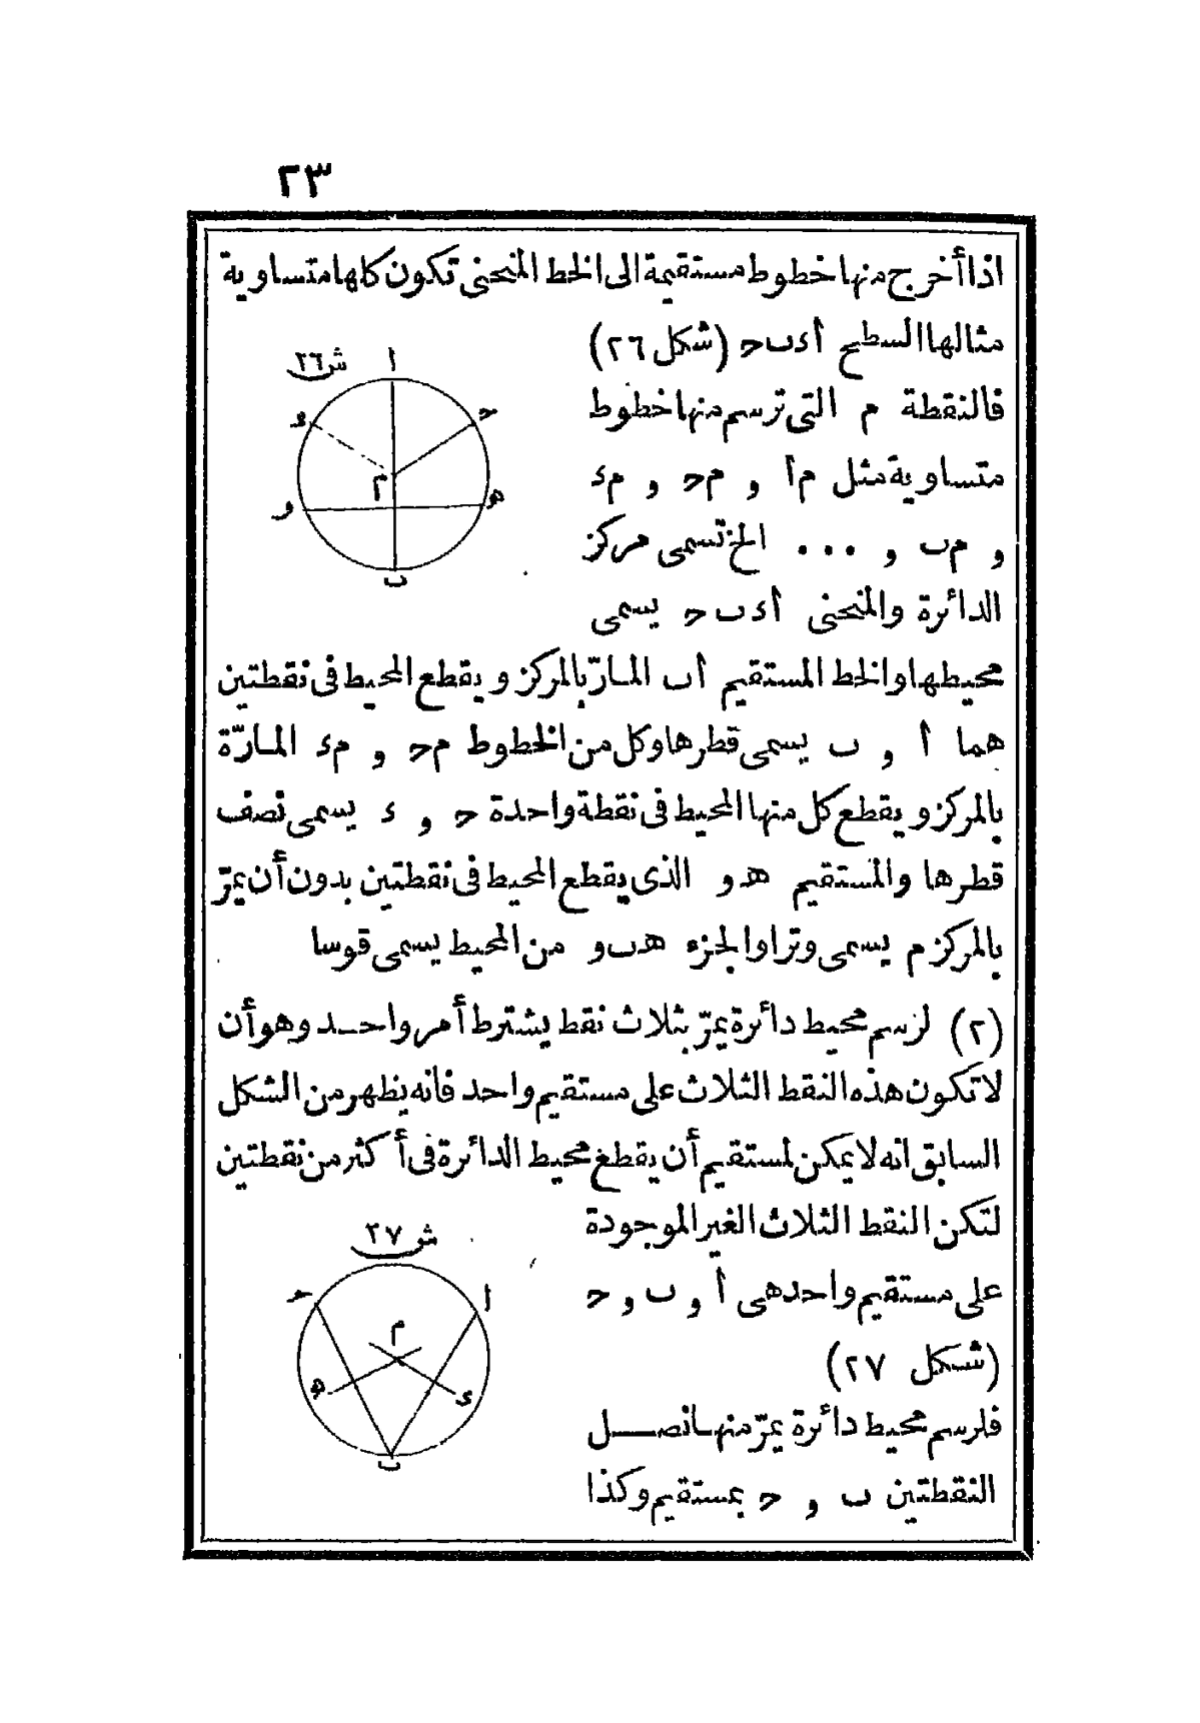 ٢٣
اذا أخرج منها خطوط مستقيمة الى الخط المنحنى تكون كلها متساوية
مثالها السطح أءبح (شكل ٢٦)
فالنقطة م التى ترسم منها خطوط
متساوية مثل مأ و مح و مء
و مب و ... الخ تسمى مركز
الدائرة والمنحنى أءبح يسمى
ش ٢٦
ا
ء
ح
م
و
ه
ب
محيطها والخط المستقيم أب المارّ بالمركز و يقطع المحيط فى نقطتين
هما أ و ب يسمى قطرها وكل من الخطوط مح و مء المارّة
بالمركز و يقطع كل منها المحيط فى نقطة واحدة ح و ء يسمى نصف
قطرها والمستقيم هو الذى يقطع المحيط فى نقطتين بدون أن يمرّ
بالمركز م يسمى وترا والجزء هبو من المحيط يسمى قوسا
(٢) لرسم محيط دائرة يمرّ بثلاث نقط يشترط أمر واحد وهو أن
لا تكون هذه النقط الثلاث على مستقيم واحد فانه يظهر من الشكل
السابق انه لا يمكن لمستقيم أن يقطع محيط الدائرة فى أكثر من نقطتين
لتكن النقط الثلاث الغير الموجودة
على مستقيم واحد هى أ و ب و ح
(شكل ٢٧)
فلرسم محيط دائرة يمرّ منها نصل
النقطتين ب و ح بمستقيم وكذا
ش ٢٧
ح
ا
م
ه
ء
ب